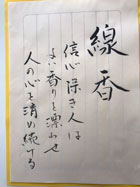 線香
信心深き人は
よい香りを漂わせ
人の心を清め続ける